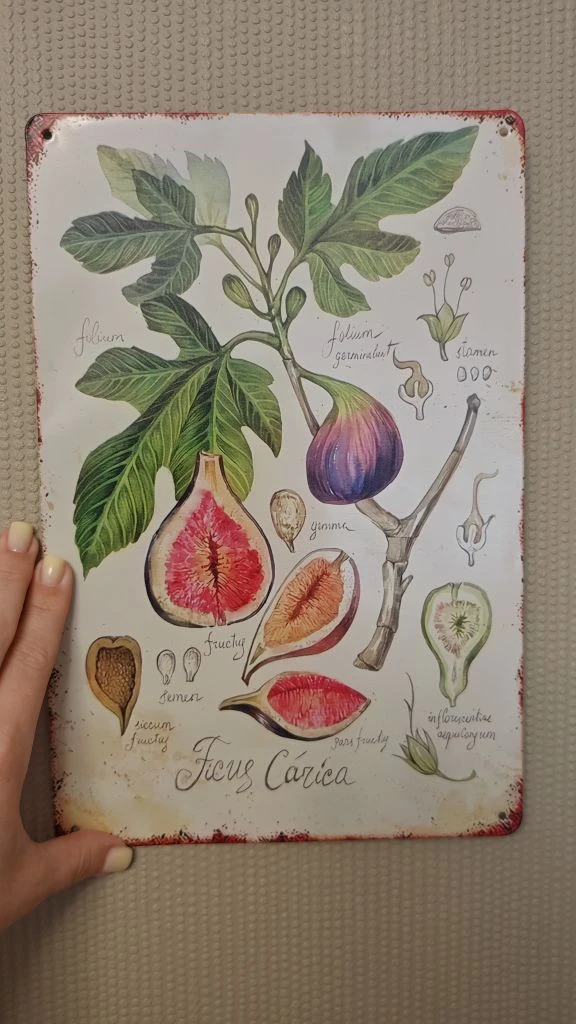 folium
folium
germinalunt
stamen
gemma
fructus
semen
siccum
fructus
pars fructus
inflorescvitiae
Ficus Cárica